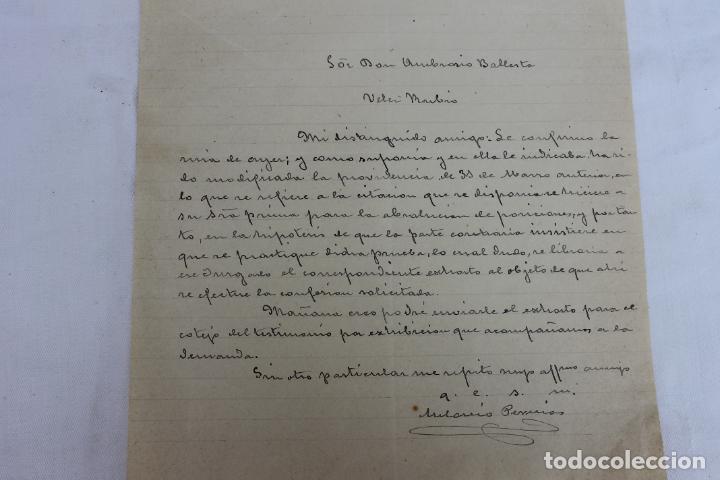 Sör Don Ambrosio Ballesta
Velez Rubio
Mi distinguido amigo: Le confirmo la
mia de ayer; y como suponia y en ella le indicaba, ha si-
do modificada la providencia de 33 de Marzo anterior, en
lo que se refiere a la citacion que se disponia se hiciere a
su Sra prima para la absolucion de posiciones, y por tan-
to, en la hipotesis de que la parte contraria insistiere en
que se practique dicha prueba, lo cual dudo, se libraria a
ese Juzgado el correspondiente exhorto al objeto de que ahi
se efectue la confesion solicitada.
Mañana creo podré enviarle el exhorto para el
cotejo del testimonio por exhibicion que acompañamos a la
demanda.
Sin otro particular me repito suyo affmo amigo
q. e. s. m.
todocoleccion.net